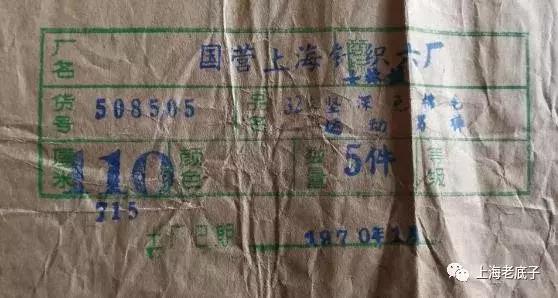 厂名 国营上海针织六厂
货号 508505 品名 32 坚 深 色 棉毛
运动 男 裤
110 颜色 数量 5件 等级
715
出厂日期 1970年
上海老底子